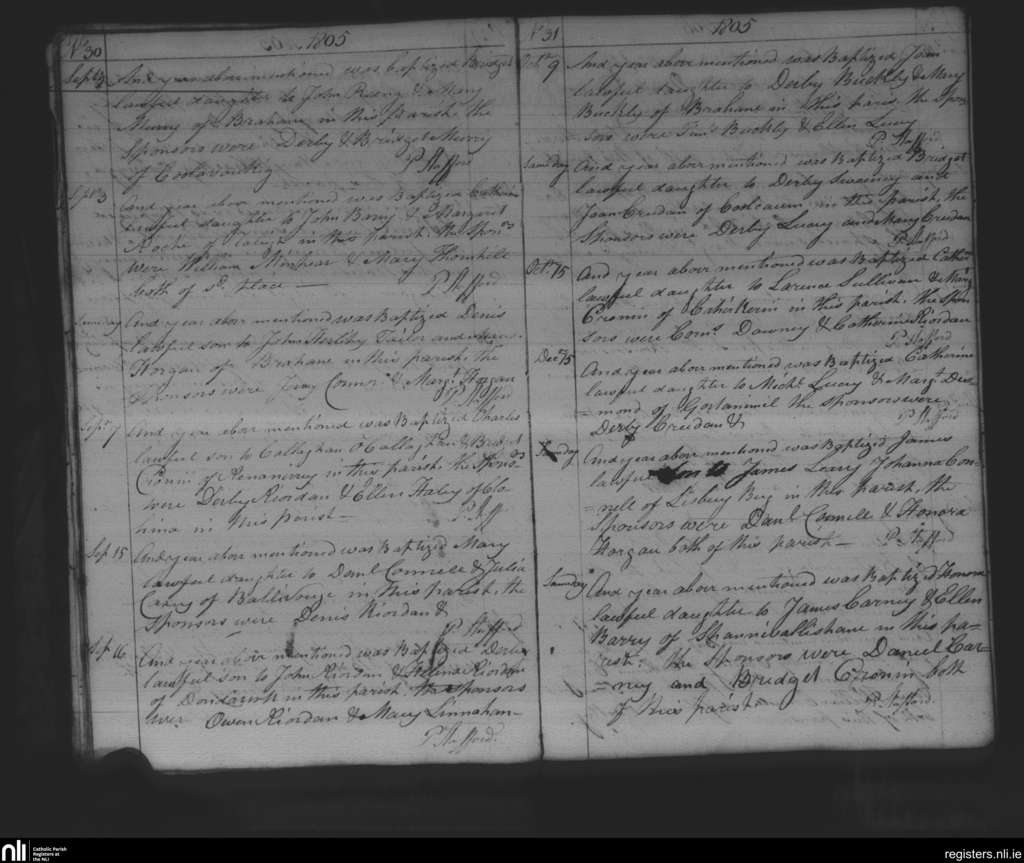 No 30
1805
Sep 13 And year above mentioned was baptized Bridget
lawful daughter to John & Mary
Murry of Brahane in this parish. the
sponsors were Derby & Bridget Murry
of
P. Stafford
And year above mentioned was Baptized Catherine
lawful daughter to John Barry & Margaret
Roche of in this parish. the spon.rs
were William & Mary Thornhill
both of sd. place —
P. Stafford
Sunday And year above mentioned was Baptized Denis
lawful son to John Tailor and
Horgan of Brahane in this parish. the
sponsors were Connor & Marg.t Horgan
P. Stafford
Sep.r 7 And year above mentioned was Baptized Charles
lawful son to Callaghan O Callaghan & Bridget
Cronin of in this parish. the spons.rs
were Derby Riordan & Ellen Haley of Clo-
hina in this parish —
P. Staff
Sep. 15 And year above mentioned was Baptized Mary
lawful daughter to Danl. Connell & Julia
Casey of in this parish. the
sponsors were Denis Riordan &
P. Stafford
Sep. 16 And year above mentioned was Baptized Derby
lawful son to John Riordan & Riordan
of in this parish. the sponsors
were Owen Riordan & Mary Linnahan —
P. Stafford.
No 31
1805
Oct.r 9 And year above mentioned was Baptized Joan
lawful daughter to Derby Buckly & Mary
Buckly of Brahane in this paris. the spon-
sors were Tim.s Buckly & Ellen Leary
P. Stafford
Same day And year above mentioned was Baptized Bridget
lawful daughter to Derby Sweeney and
Joan Creedan of in this parish, the
sponsors were Derby Leary and Mary Creedan
P. Stafford
Oct.r 15 And year above mentioned was Baptized Cathrin
lawful daughter to Larence Sullivan & Marg.t
Cronin of in this parish. the spon-
sors were Corn.s Dawney & Catherine Riordan
P. Stafford
Dec.r 15 And year above mentioned was Baptized Catharine
lawful daughter to Mich.l Leary & Marg.t Des-
=mond of the sponsors were
Derby Creedan &
P. Stafford
Sunday And year above mentioned was Baptized James
lawful son to James Leary Johanna Con-
=nell of Lisbuy Beg in this parish. the
sponsors were Danl. Connell & Honora
Horgan both of this parish —
P. Stafford
Same day And year above mentioned was Baptized Honora
lawful daughter to James Carney & Ellen
Barry of Shannivallishane in this pa-
=rish. the sponsors were Daniel Car-
=ney and Bridget Cronin both
of this parish —
P. Stafford.
nli
Catholic Parish
Registers at
the NLI
registers.nli.ie